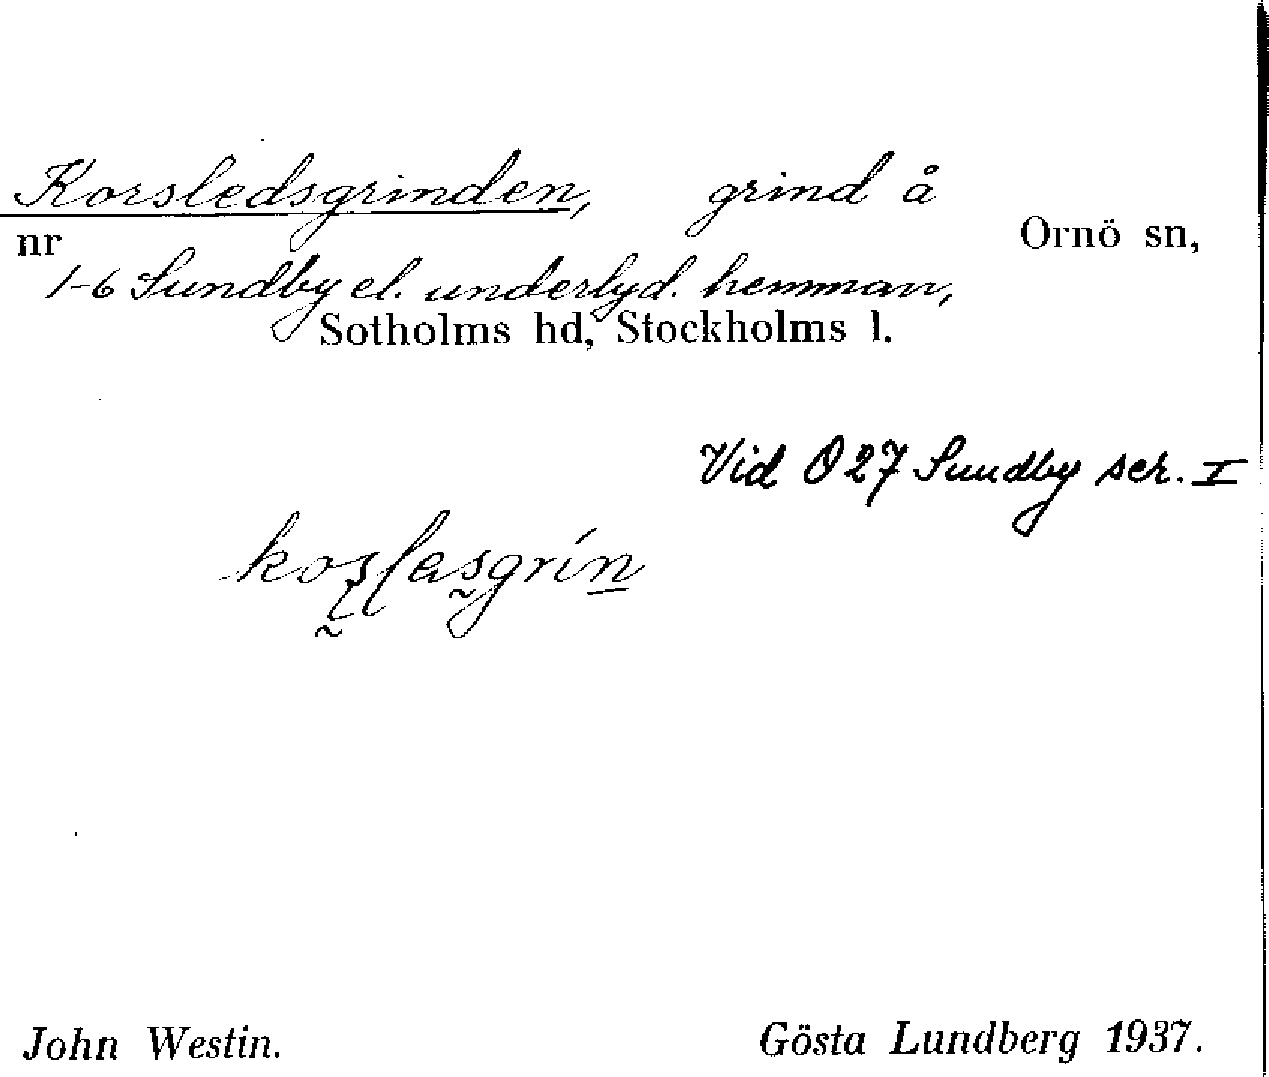 Korsledsgrinden, grind å
nr Ornö sn,
1-6 Sundby el. underlyd. hemman,
Sotholms hd, Stockholms l.
Vid Ö 27 Sundby scr. I
John Westin. Gösta Lundberg 1937.